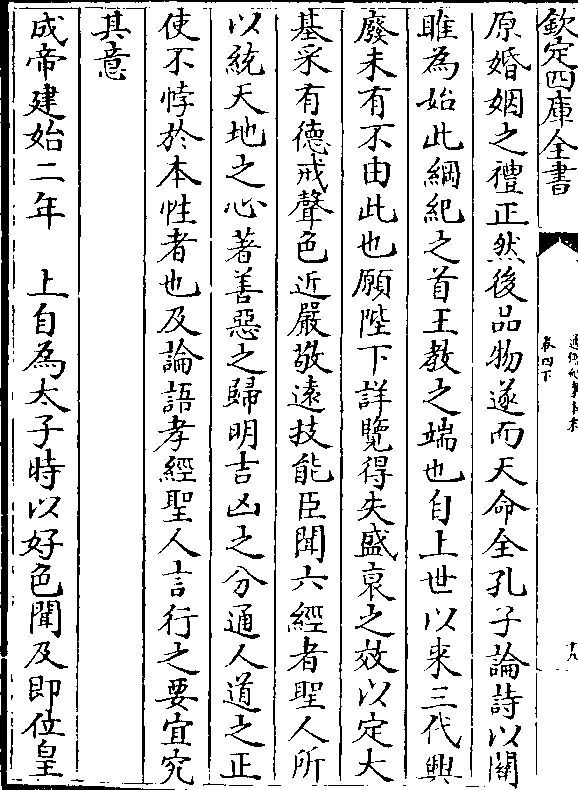 欽定四庫全書
卷四下
十八
原婚姻之禮正然後品物遂而天命全孔子論詩以關
雎為始此綱紀之首王教之端也自上世以来三代興
廢未有不由此也願陛下詳覽得失盛衰之效以定大
基采有德戒聲色近嚴敬遠技能臣聞六經者聖人所
以統天地之心著善惡之歸明吉凶之分通人道之正
使不悖於本性者也及論語孝經聖人言行之要宜究
其意
成帝建始二年　上自為太子時以好色聞及即位皇